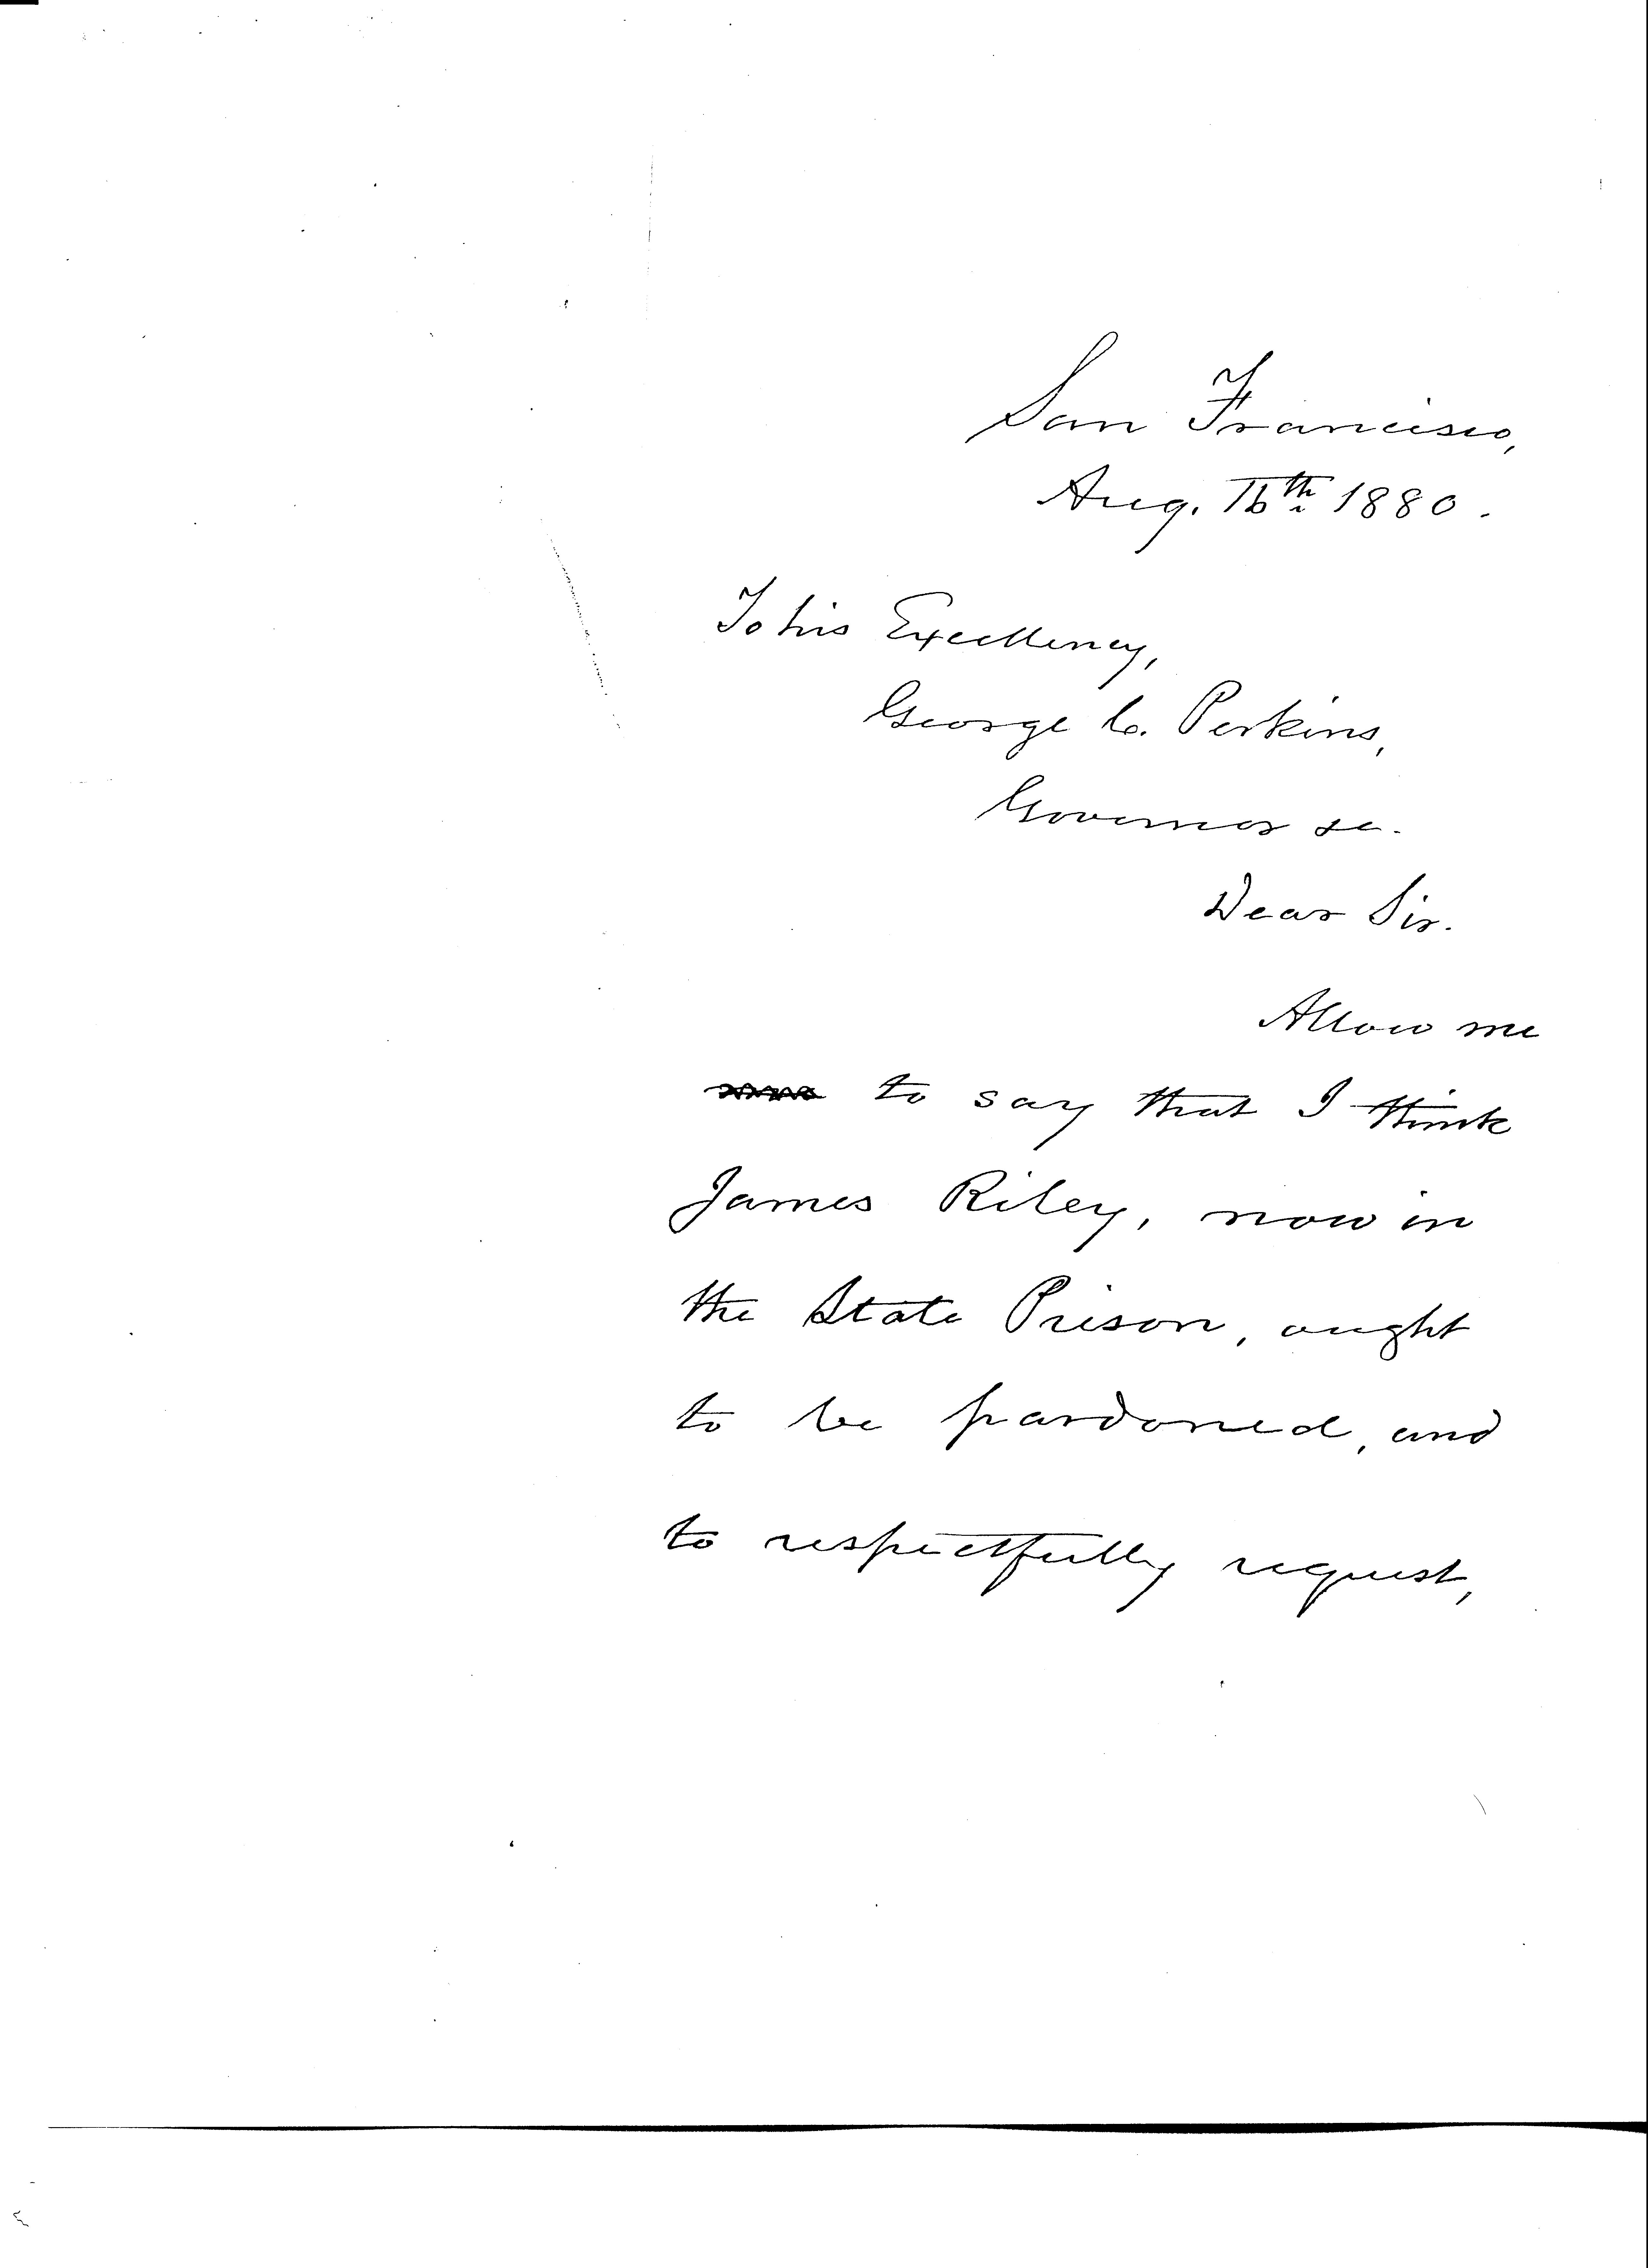 San Francisco,
Aug. 16th 1880.
To his Excellency,
George C. Perkins,
Governor &c.
Dear Sir.
Allow me
to say that I think
James Riley, now in
the State Prison, ought
to be pardoned, and
to respectfully request,